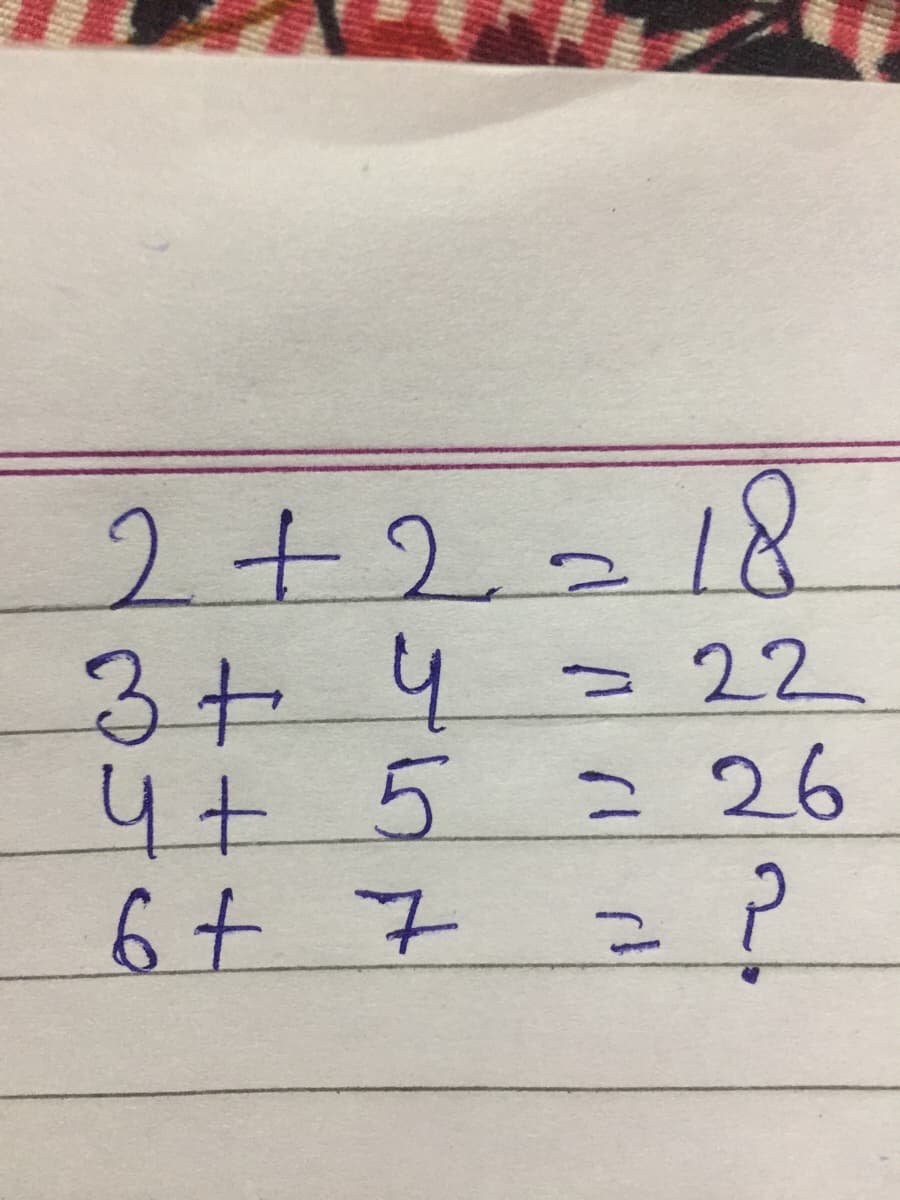 2 + 2 = 18
3 + 4 = 22
4 + 5 = 26
6 + 7 = ?